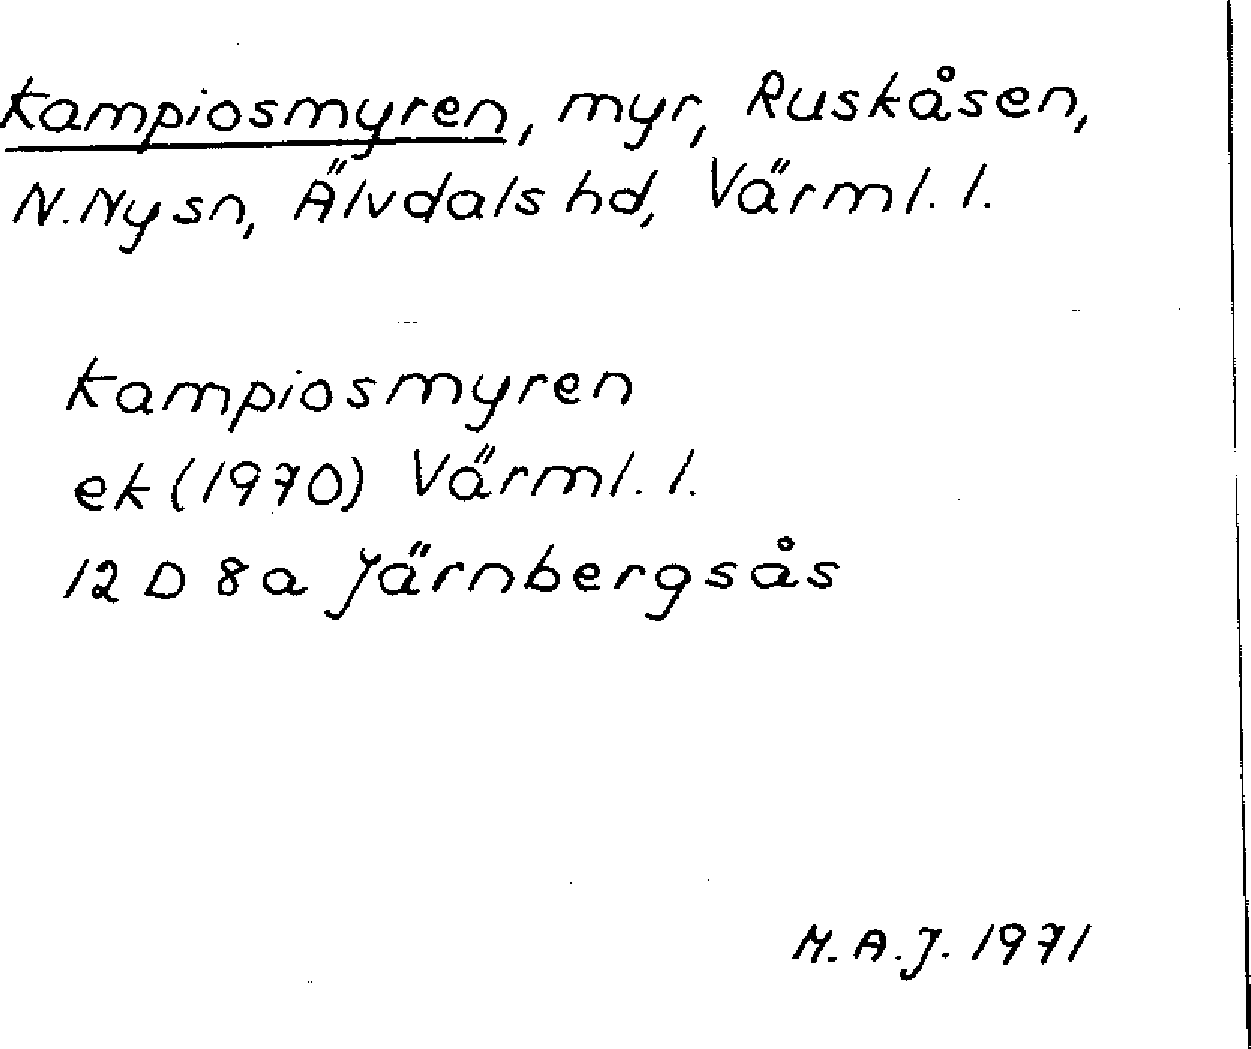 Kampiosmyren, myr, Ruskåsen,
N. Ny sn, Älvdals hd, Värml. l.
Kampiosmyren
ek (1970) Värml. l.
12 D 8a Järnbergsås
M. A. J. 1971